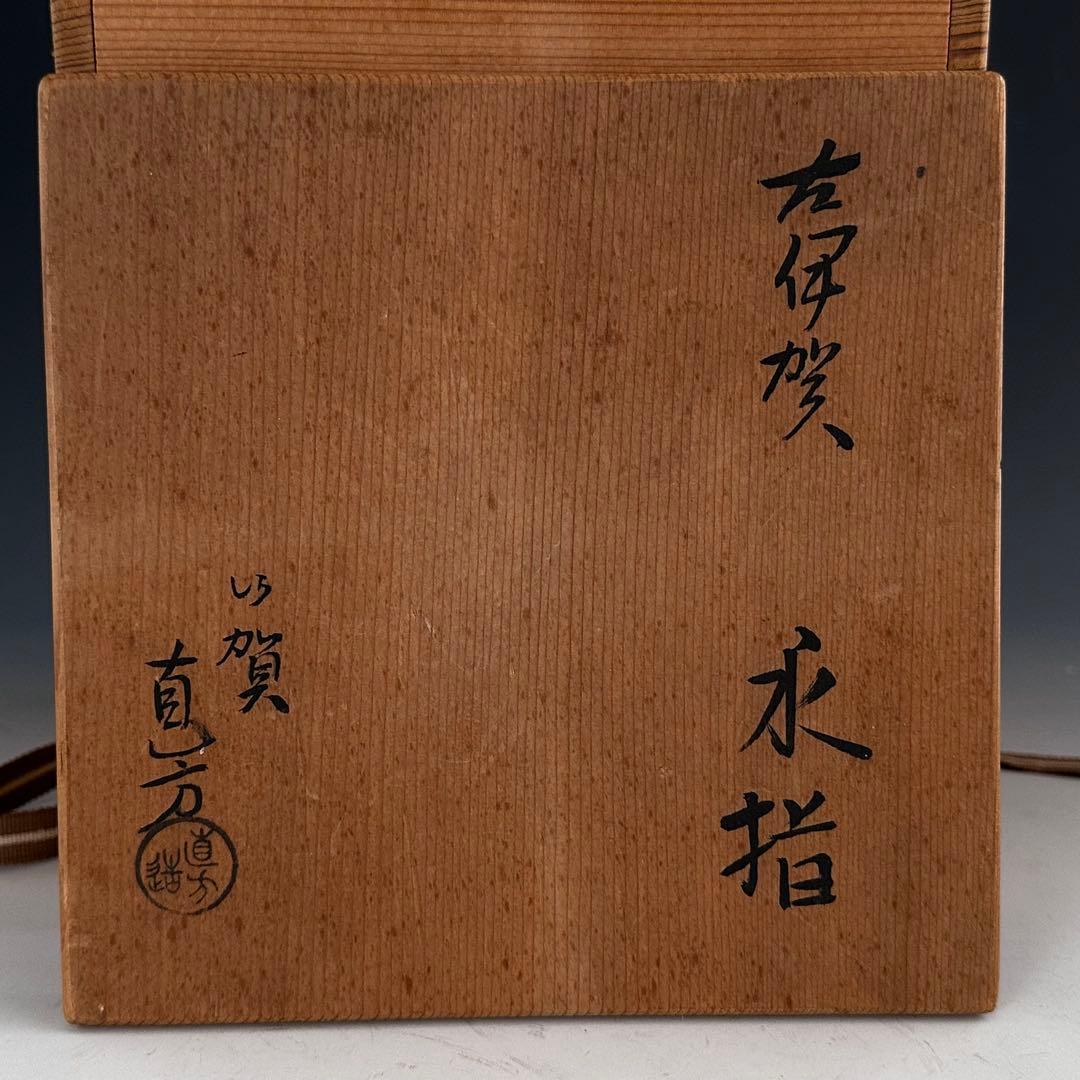 古伊賀
水指
以賀
直方
直方造